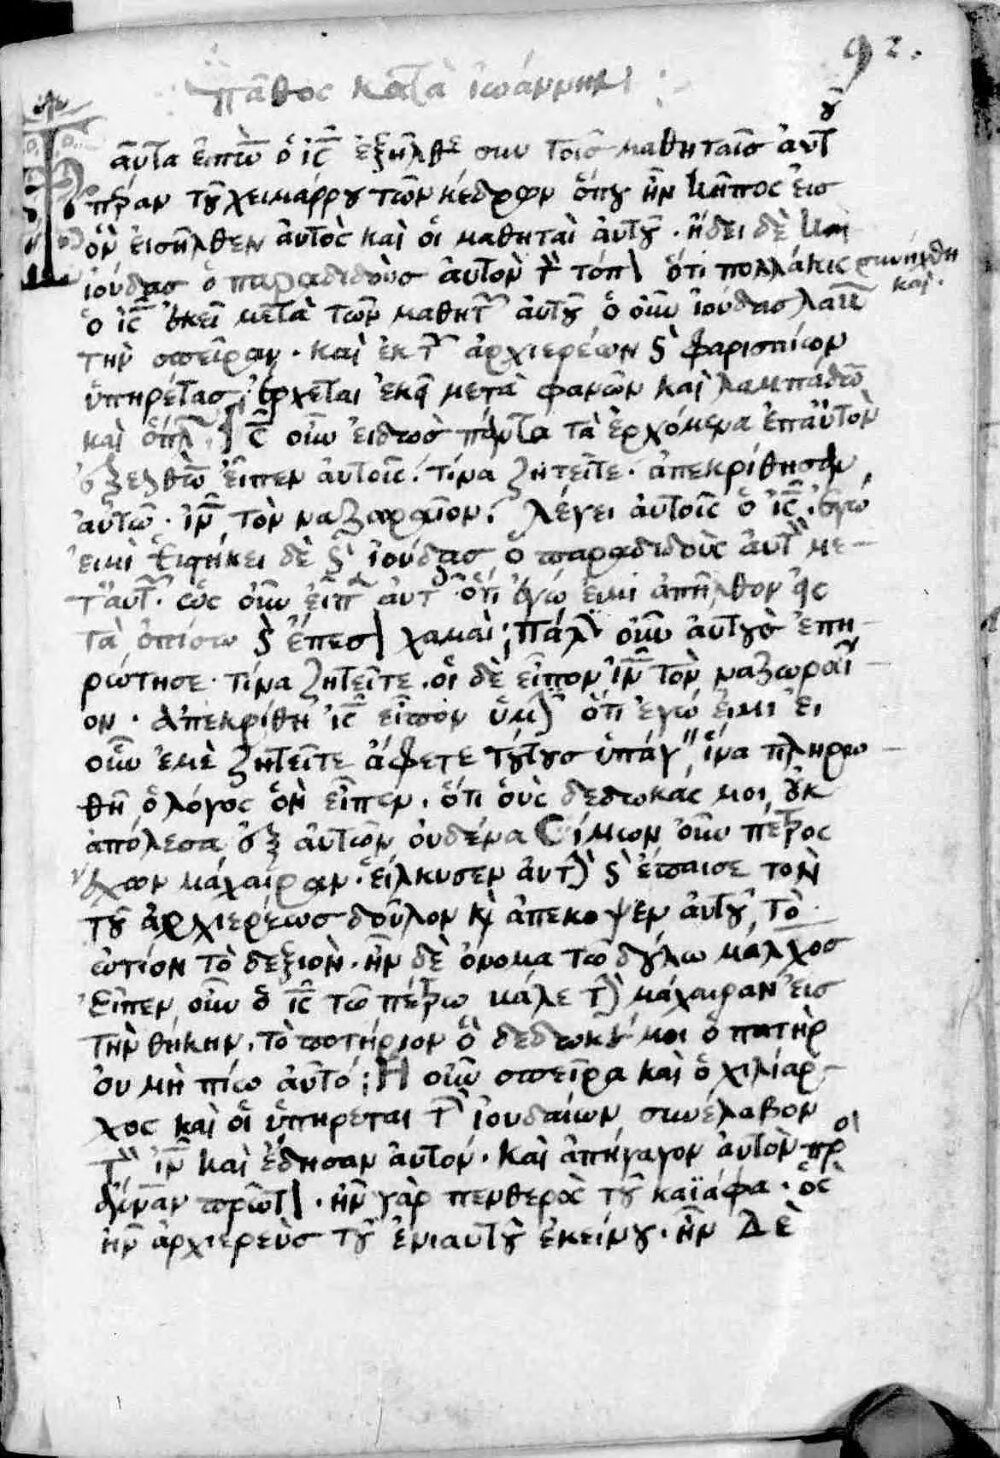 92.
πάθος κατὰ ἰωάννην
Ταῦτα εἰπὼν ὁ ἰς ἐξῆλθε σὺν τοῖς μαθηταῖς αὐτοῦ
πέραν τοῦ χειμάρρου τῶν κέδρων ὅπου ἦν κῆπος εἰς
ὃν εἰσῆλθεν αὐτὸς καὶ οἱ μαθηταὶ αὐτοῦ · ἤδει δὲ καὶ
ἰούδας ὁ παραδιδοὺς αὐτὸν τὸν τόπον ὅτι πολλάκις συνήχθη
καὶ.
ὁ ἰς ἐκεῖ μετὰ τῶν μαθητῶν αὐτοῦ ὁ οὖν ἰούδας λαβὼν
τὴν σπεῖραν · καὶ ἐκ τῶν ἀρχιερέων καὶ φαρισαίων
ὑπηρέτας · ἔρχεται ἐκεῖ μετὰ φανῶν καὶ λαμπάδων
καὶ ὅπλων · ἰς οὖν εἰδὼς πάντα τὰ ἐρχόμενα ἐπ' αὐτὸν
ἐξελθὼν εἶπεν αὐτοῖς · τίνα ζητεῖτε · ἀπεκρίθησαν
αὐτῶ · ἰν τὸν ναζωραῖον · λέγει αὐτοῖς ὁ ἰς · ἐγώ
εἰμι εἱστήκει δὲ καὶ ἰούδας ὁ παραδιδοὺς αὐτὸν με-
τ' αὐτῶν · ὡς οὖν εἶπεν αὐτοῖς ὅτι ἐγώ εἰμι ἀπῆλθον εἰς
τὰ ὀπίσω καὶ ἔπεσον χαμαὶ · Πάλιν οὖν αὐτοὺς ἐπη-
ρώτησε · τίνα ζητεῖτε · οἱ δὲ εἶπον ἰν τὸν ναζωραῖ-
ον · ἀπεκρίθη ἰς εἶπον ὑμῖν ὅτι ἐγώ εἰμι εἰ
οὖν ἐμὲ ζητεῖτε ἄφετε τούτους ὑπάγειν ἵνα πληρω-
θῆ ὁ λόγος ὃν εἶπεν · ὅτι οὓς δέδωκάς μοι οὐκ
ἀπόλεσα ἐξ αὐτῶν οὐδένα Σίμων οὖν πέτρος
ἔχων μάχαιραν · εἵλκυσεν αὐτὴν καὶ ἔπαισε τὸν
τοῦ ἀρχιερέως δοῦλον καὶ ἀπέκοψεν αὐτοῦ τὸ
ὠτίον τὸ δεξιόν · ἦν δὲ ὄνομα τῶ δούλω μάλχος
Εἶπεν οὖν ὁ ἰς τῶ πέτρω βάλε τὴν μάχαιραν εἰς
τὴν θήκην · τὸ ποτήριον ὃ δέδωκέ μοι ὁ πατὴρ
οὐ μὴ πίω αὐτό : Η οὖν σπεῖρα καὶ ὁ χιλίαρ-
χος καὶ οἱ ὑπηρέται τῶν ἰουδαίων συνέλαβον
τὸν ἰν καὶ ἔδησαν αὐτόν · καὶ ἀπήγαγον αὐτὸν πρὸς
ἄνναν πρῶτον · ἦν γὰρ πενθερὸς τοῦ καϊάφα · ὃς
ἦν ἀρχιερεὺς τοῦ ἐνιαυτοῦ ἐκείνου · ἦν Δὲ